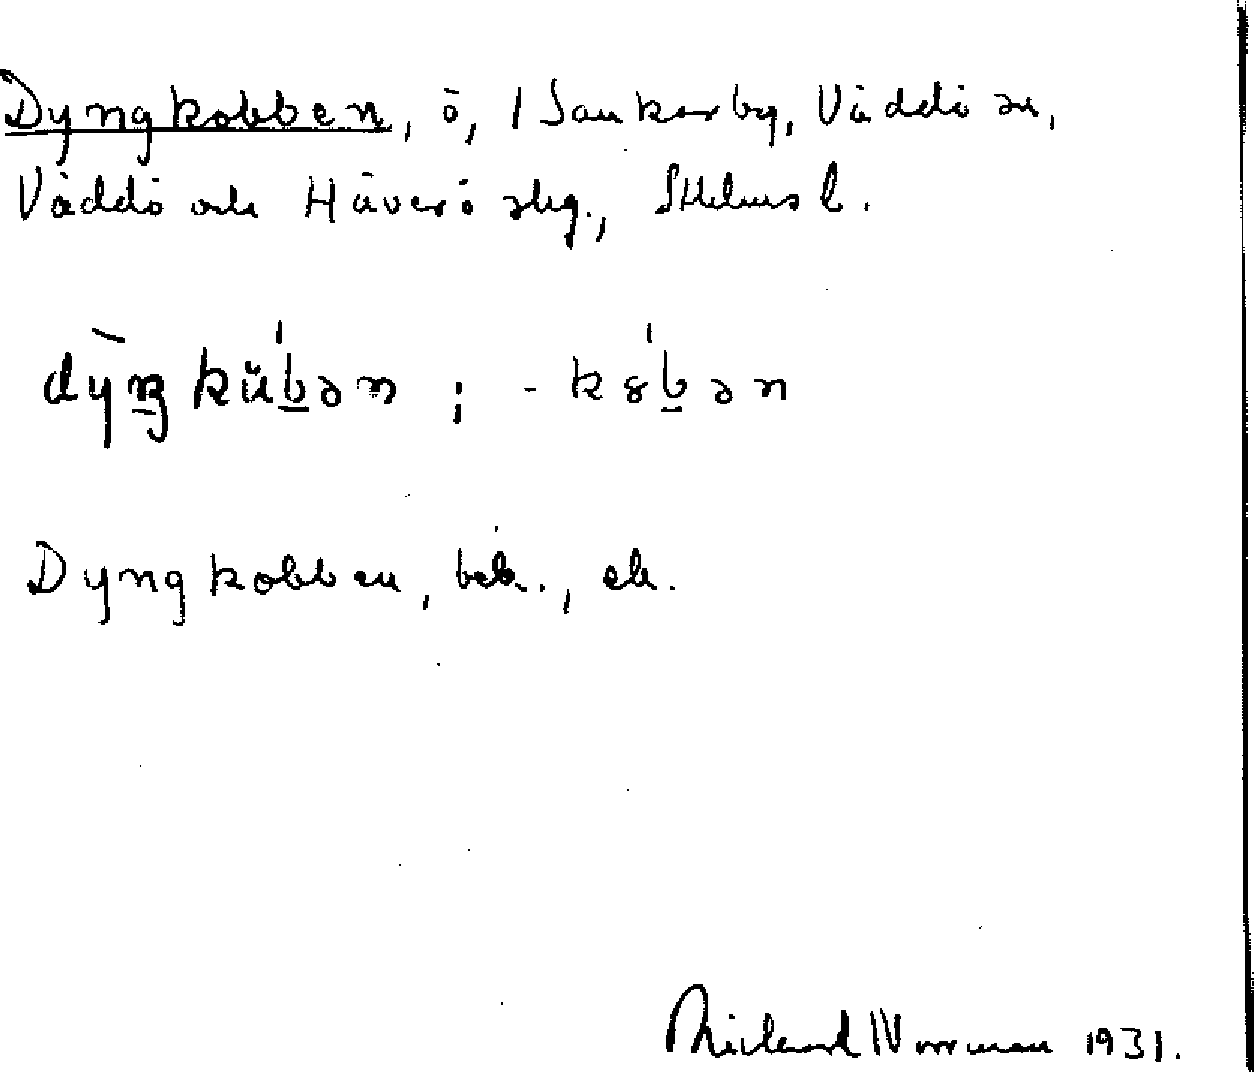 Dyngkobben, ö, / Sankarby, Väddö sn,
Väddö och Häverö skg., Sthlms l.
dy̆ŋkŭb̲ən ; -k8b̲ən
Dyngkobben, bek., ek.
Rickard Norrman 1931.